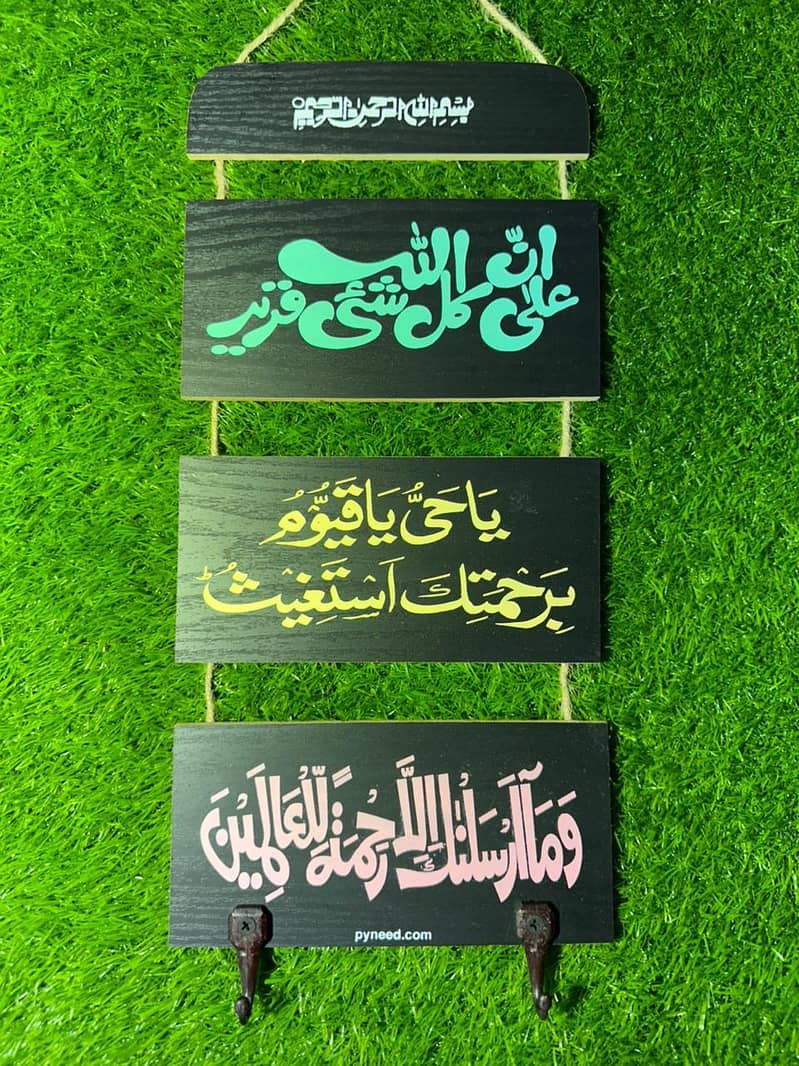 بسم الله الرحمن الرحيم
انّ الله
علٰی کل شئ قدیر
یَا حَیُّ یَا قَیُّوْمُ
بِرَحْمَتِكَ اَسْتَغِیْثُ
وَمَآ اَرْسَلْنٰكَ اِلَّا رَحْمَةً لِّلْعَالَمِيْنَ
pyneed.com